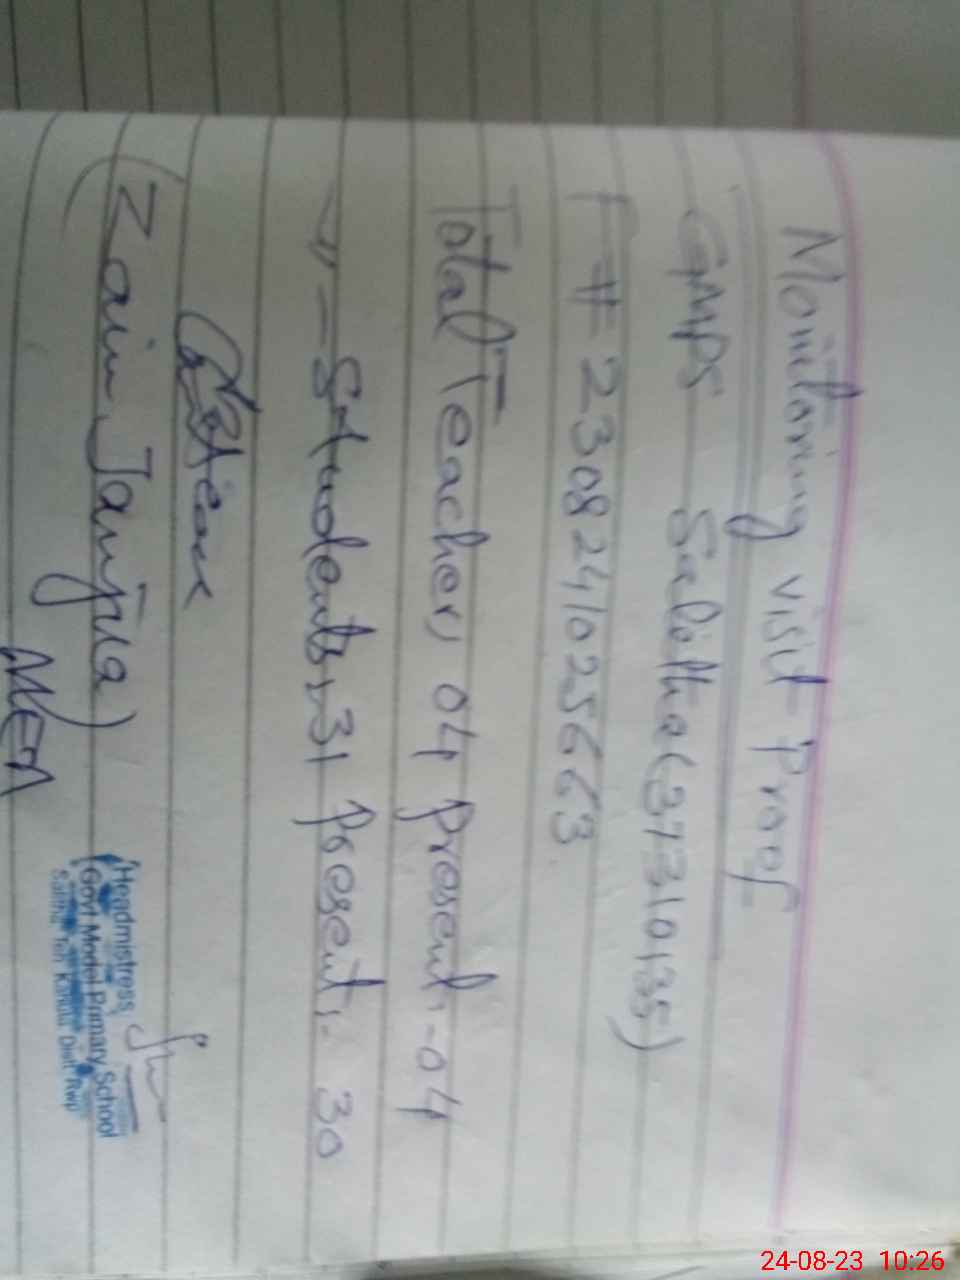 Monitoring visit Proof
GMPS Salitha (37310135)
F# 230824102 5663
Total Teachers 04 present - 04
〃 - Students - 31 Present - 30
(Zain Janjua)
MEA
Headmistress
Govt Model Primary School
Salitha Teh Kahuta Distt Rwp
24-08-23 10:26